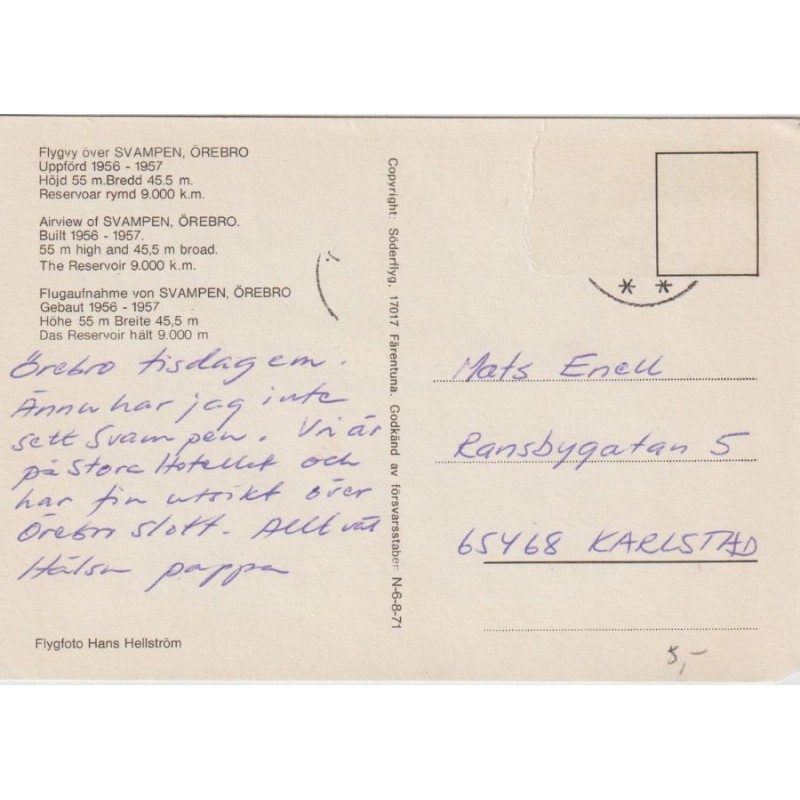 Flygvy över SVAMPEN, ÖREBRO
Uppförd 1956 - 1957
Höjd 55 m.Bredd 45.5 m.
Reservoar rymd 9.000 k.m.
Airview of SVAMPEN, ÖREBRO.
Built 1956 - 1957.
55 m high and 45,5 m broad.
The Reservoir 9.000 k.m.
Flugaufnahme von SVAMPEN, ÖREBRO
Gebaut 1956 - 1957
Höhe 55 m Breite 45,5 m
Das Reservoir hält 9.000 m
Örebro tisdag em.
Ännu har jag inte
sett Svampen. Vi är
på Stora Hotellet och
har fin utsikt över
Örebro slott. Allt väl
Hälsn pappa
Flygfoto Hans Hellström
Copyright: Söderflyg. 17017 Färentuna. Godkänd av försvarsstaben N-6-8-71
Mats Enell
Ransbygatan 5
65468 KARLSTAD
5,-